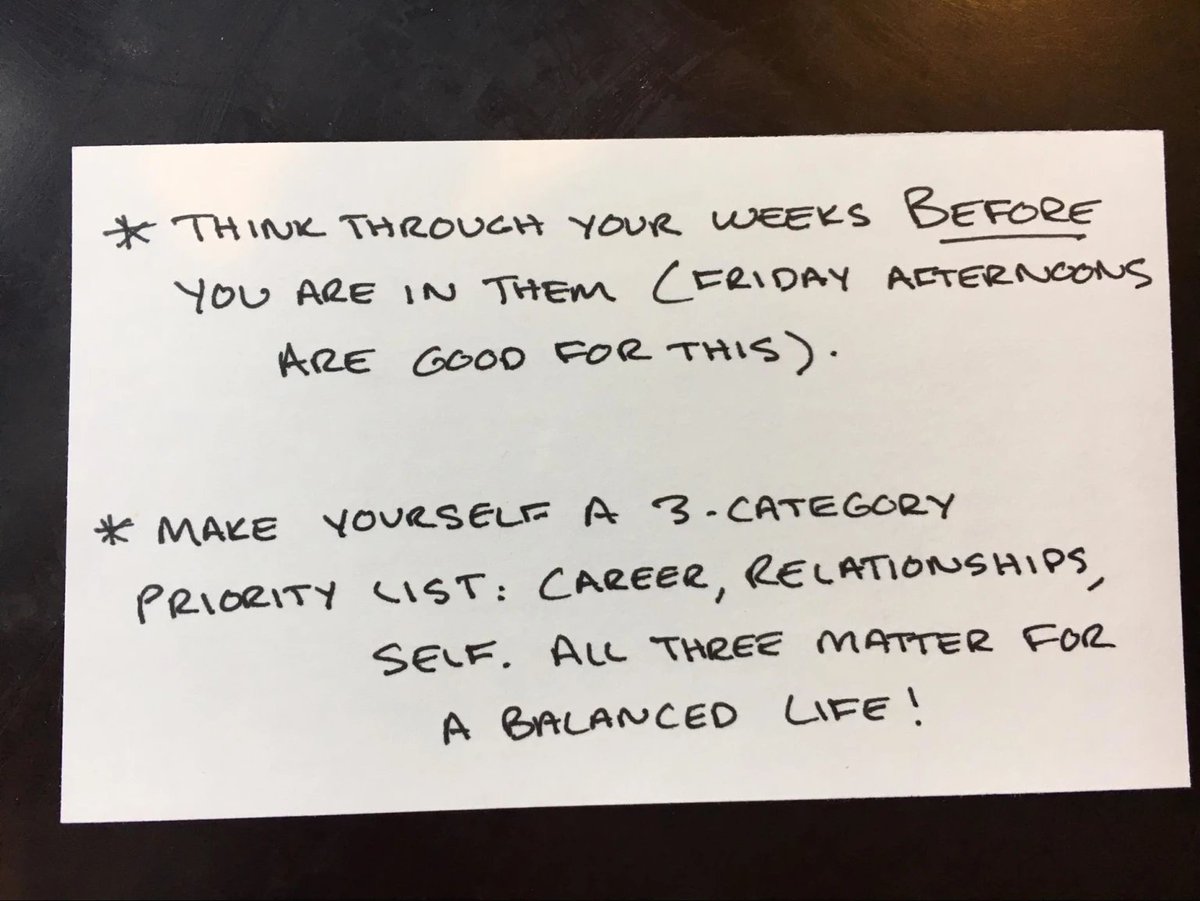 * THINK THROUGH YOUR WEEKS BEFORE
YOU ARE IN THEM (FRIDAY AFTERNOONS
ARE GOOD FOR THIS).
* MAKE YOURSELF A 3-CATEGORY
PRIORITY LIST: CAREER, RELATIONSHIPS,
SELF. ALL THREE MATTER FOR
A BALANCED LIFE!